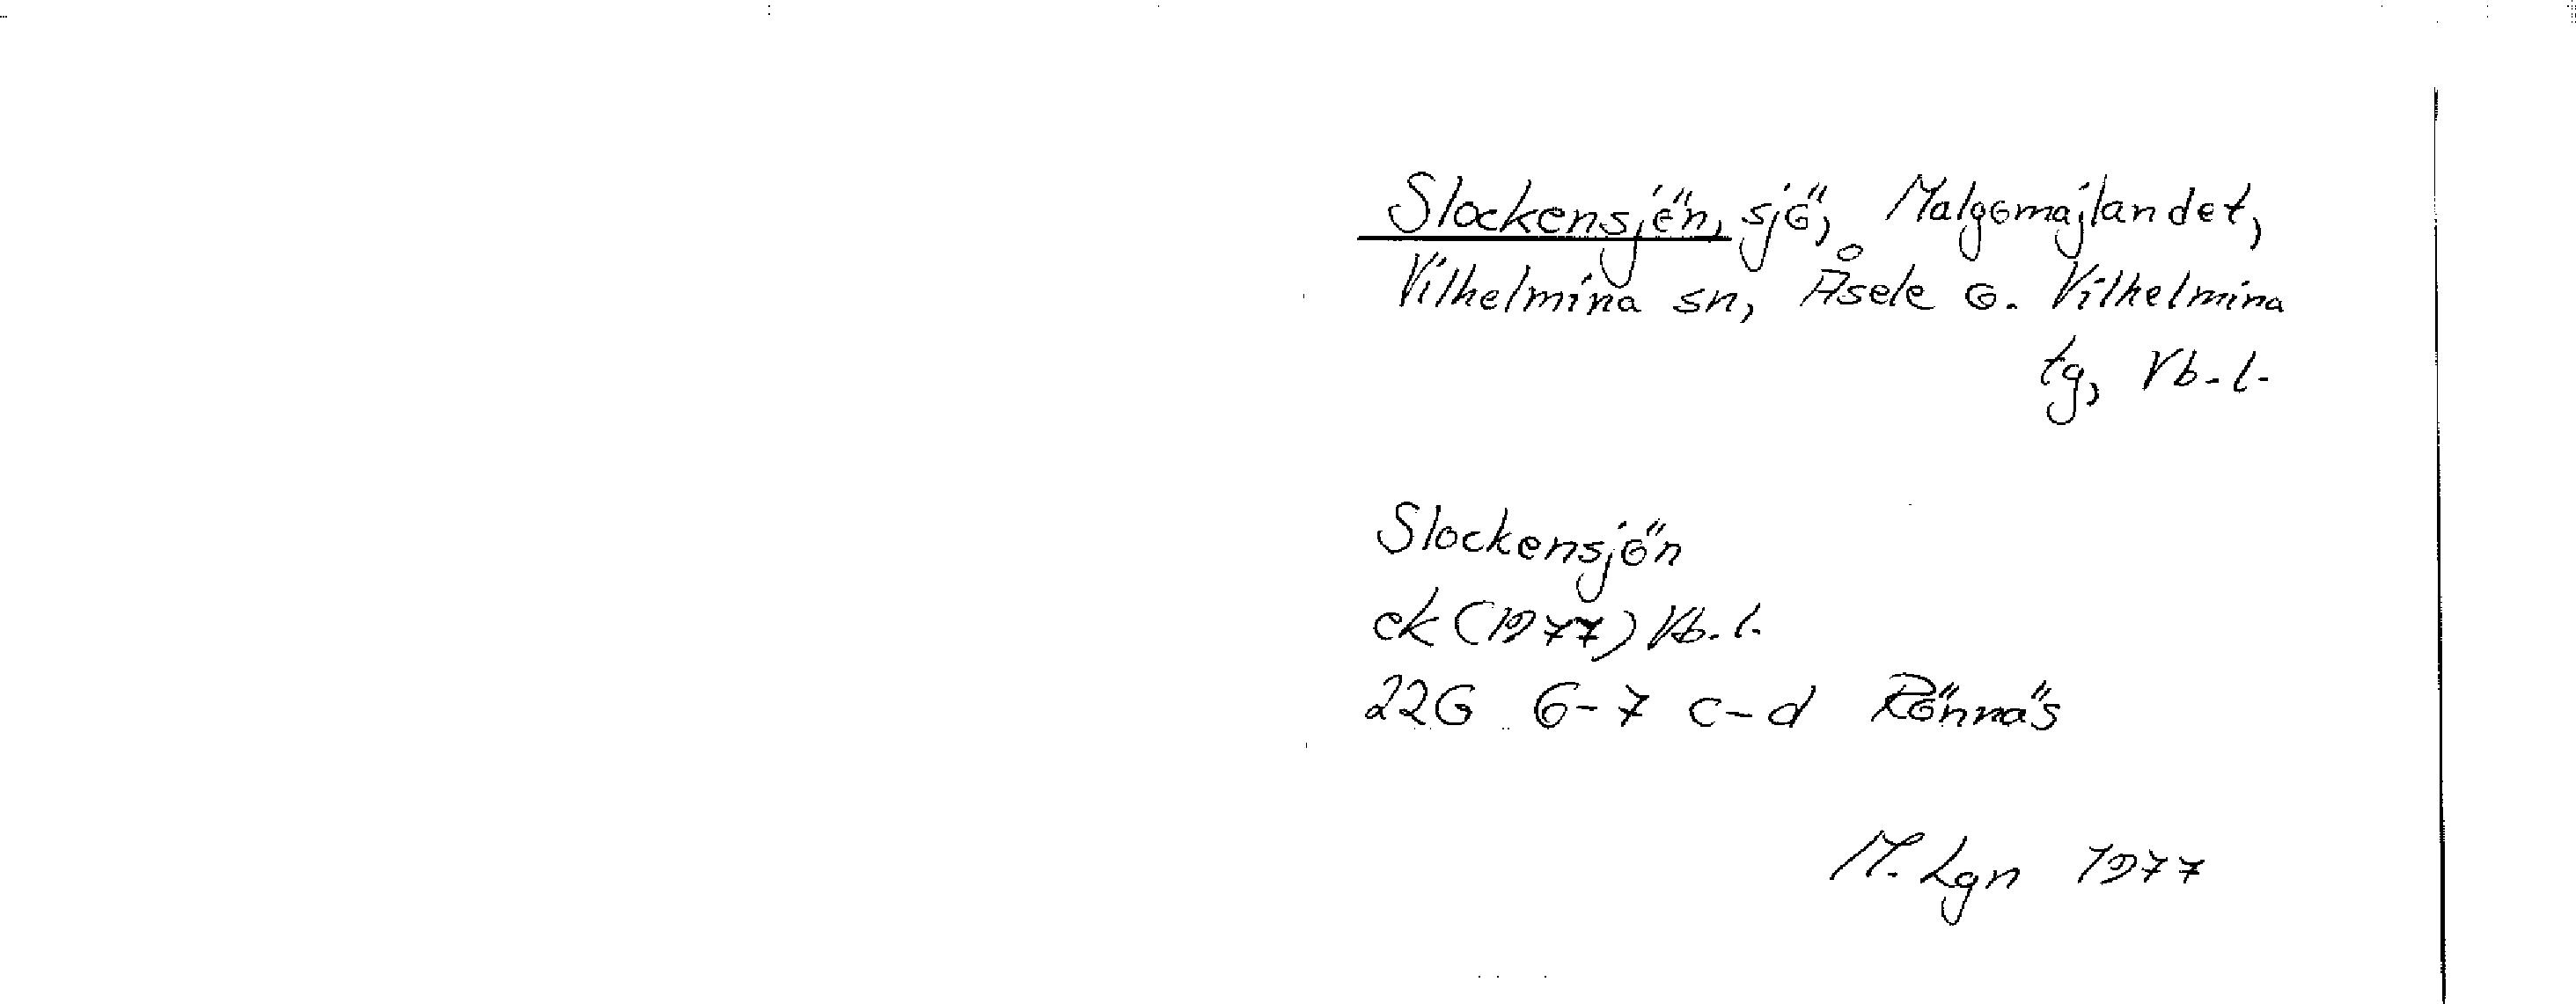 Slockensjön, sjö, Malgomajlandet,
Vilhelmina sn, Åsele o. Vilhelmina
tg, Vb. l.
Slockensjön
ek (1977) Vb. l.
22G 6-7 c-d Rönnäs
M. Lgn 1977